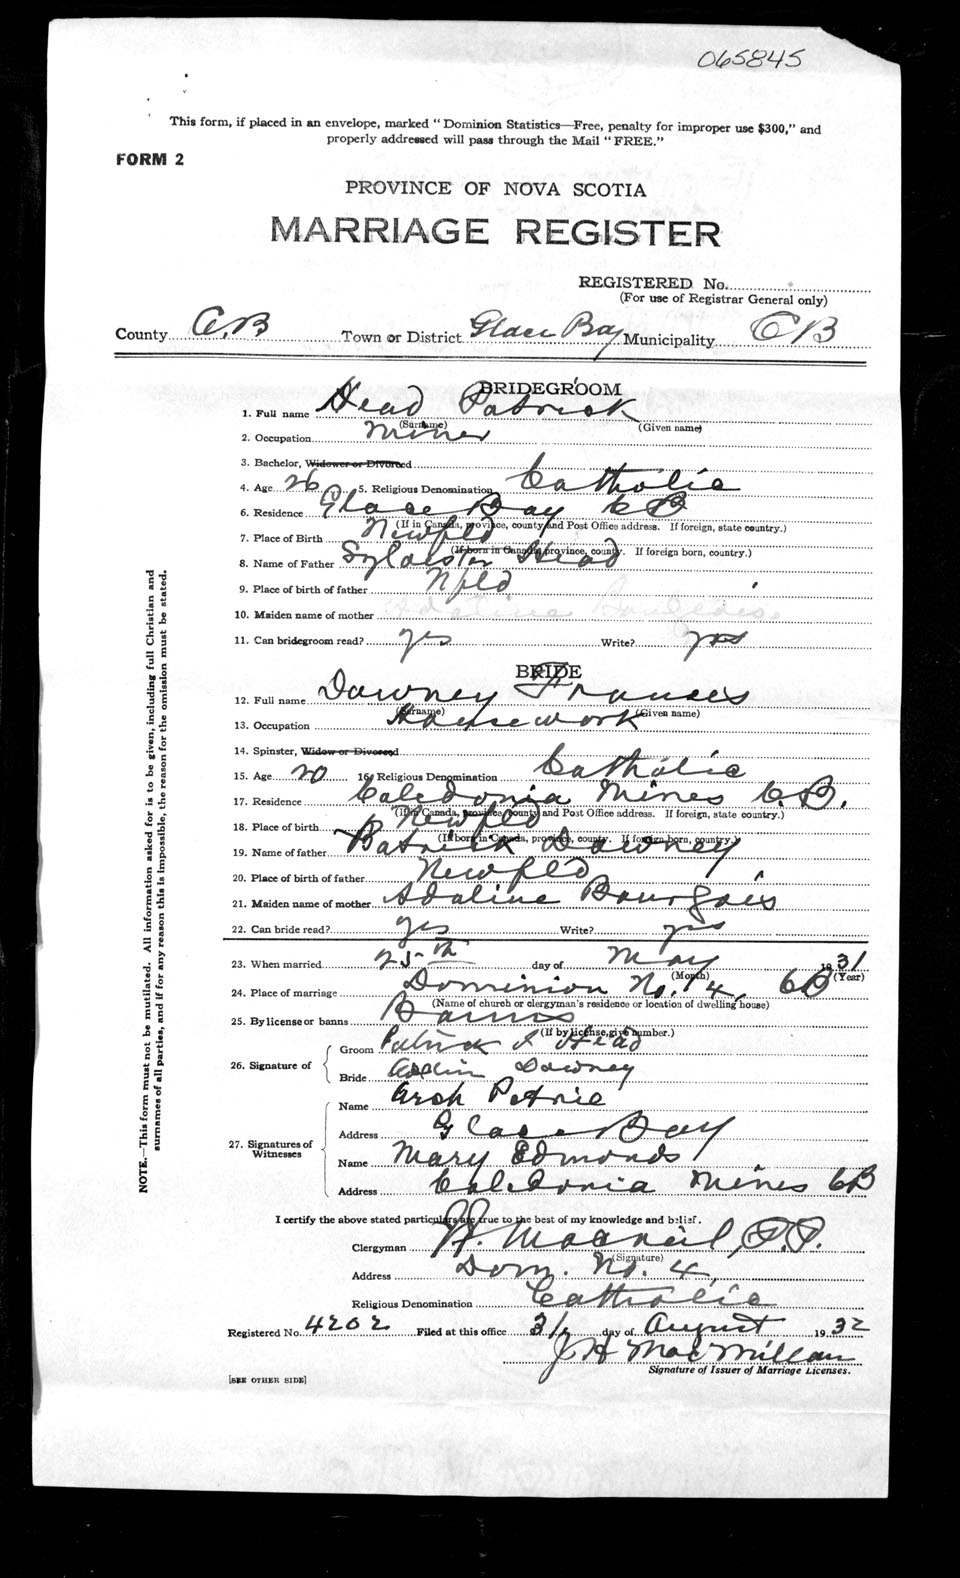 065845
This form, if placed in an envelope, marked " Dominion Statistics—Free, penalty for improper use $300," and
properly addressed will pass through the Mail " FREE."
FORM 2
PROVINCE OF NOVA SCOTIA
MARRIAGE REGISTER
REGISTERED No.
(For use of Registrar General only)
County C.B Town or District Glace Bay Municipality CB
BRIDEGROOM
1. Full name Head Patrick
(Surname) (Given name)
2. Occupation Miner
3. Bachelor, Widower or Divorced
4. Age 26 5. Religious Denomination Catholic
6. Residence Glace Bay CB
(If in Canada, province, county and Post Office address. If foreign, state country.)
7. Place of Birth Newfld
(If born in Canada, province, county. If foreign born, country.)
8. Name of Father Sylvester Head
9. Place of birth of father Nfld
10. Maiden name of mother Adaline
11. Can bridegroom read? yes Write? yes
BRIDE
12. Full name Downey Frances
(Surname) (Given name)
13. Occupation Housework
14. Spinster, Widow or Divorced
15. Age 20 16. Religious Denomination Catholic
17. Residence Caledonia Mines C.B.
(If in Canada, province, county and Post Office address. If foreign, state country.)
18. Place of birth Newfld
(If born in Canada, province, county. If foreign born, country.)
19. Name of father Patrick Downey
20. Place of birth of father Newfld
21. Maiden name of mother Adaline Bourgois
22. Can bride read? yes Write? yes
23. When married 25th day of May 1931
(Month) (Year)
24. Place of marriage Dominion No. 4, CB
(Name of church or clergyman's residence or location of dwelling house)
25. By license or banns Banns
(If by license, give number.)
26. Signature of
Groom Patrick J Head
Bride Downey
27. Signatures of Witnesses
Name Arch Petrie
Address Glace Bay
Name Mary Edmonds
Address Caledonia Mines CB
I certify the above stated particulars are true to the best of my knowledge and belief.
Clergyman MacNeil, P.P.
(Signature)
Address Dom. No. 4,
Religious Denomination Catholic
Registered No. 4202 Filed at this office 31 day of August 1932
J H MacMillan
Signature of Issuer of Marriage Licenses.
[SEE OTHER SIDE]
NOTE.—This form must not be mutilated. All information asked for is to be given, including full Christian and
surnames of all parties, and if for any reason this is impossible, the reason for the omission must be stated.